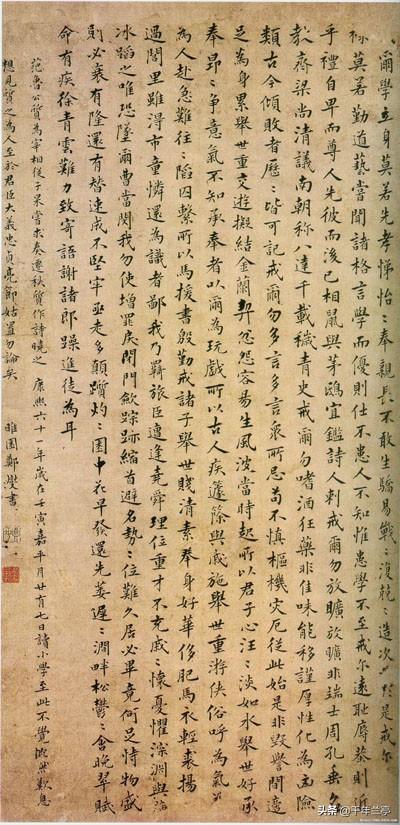 爾學立身莫若先孝悌怡〻奉親長不敢生驕易戰〻復兢〻造次必於是戒尔
祿莫若勤道藝嘗聞諸格言學而優則仕不患人不知惟患學不至戒尔遠恥辱恭則近
乎禮自卑而尊人先彼而後己相鼠與茅鴟宜鑑詩人刺戒爾勿放曠放曠非端士周孔垂名
教齊梁尚清議南朝称八達千載穢青史戒爾勿嗜酒狂藥非佳味能移謹厚性化為凶險
類古今傾敗者歷〻皆可記戒爾勿多言多言衆所忌苟不慎樞機灾厄從此始是非毀譽間適
足為身累舉世重交遊擬結金蘭契忿怨容易生風波當時起所以君子心汪〻淡如水舉世好承
奉昂〻争意氣不知承奉者以爾為玩戲所以古人疾籧篨與戚施舉世重游俠俗呼為氣義
為人赴急難往〻陷囚繫所以馬援書殷勤戒諸子舉世賤清素奉身好華侈肥馬衣輕裘揚〻
過閭里雖得市童憐還為識者鄙我乃羈旅臣遭逢堯舜理位重才不充戚〻懷憂懼深淵與薄
冰蹈之唯恐墜爾曹當閔我勿使增罪戾閉門歛踪跡縮首避名勢〻位難久居必畢竟何足恃物盛
則必衰有隆還有替速成不堅牢亟走多顛躓灼〻園中花早發還先萎遲〻澗畔松鬱〻含晚翠賦
命有疾徐青雲難力致寄語謝諸郎躁進徒為耳
范魯公質為宰相從子杲嘗求奏遷秩質作詩曉之 康熙六十一年歲在壬寅嘉平月廿有七日讀小學至此不覺慨然歎息
想見質之為人至於君臣大義忠貞亮節姑置勿論矣 雎園鄭燮書
头条 @千年兰亭